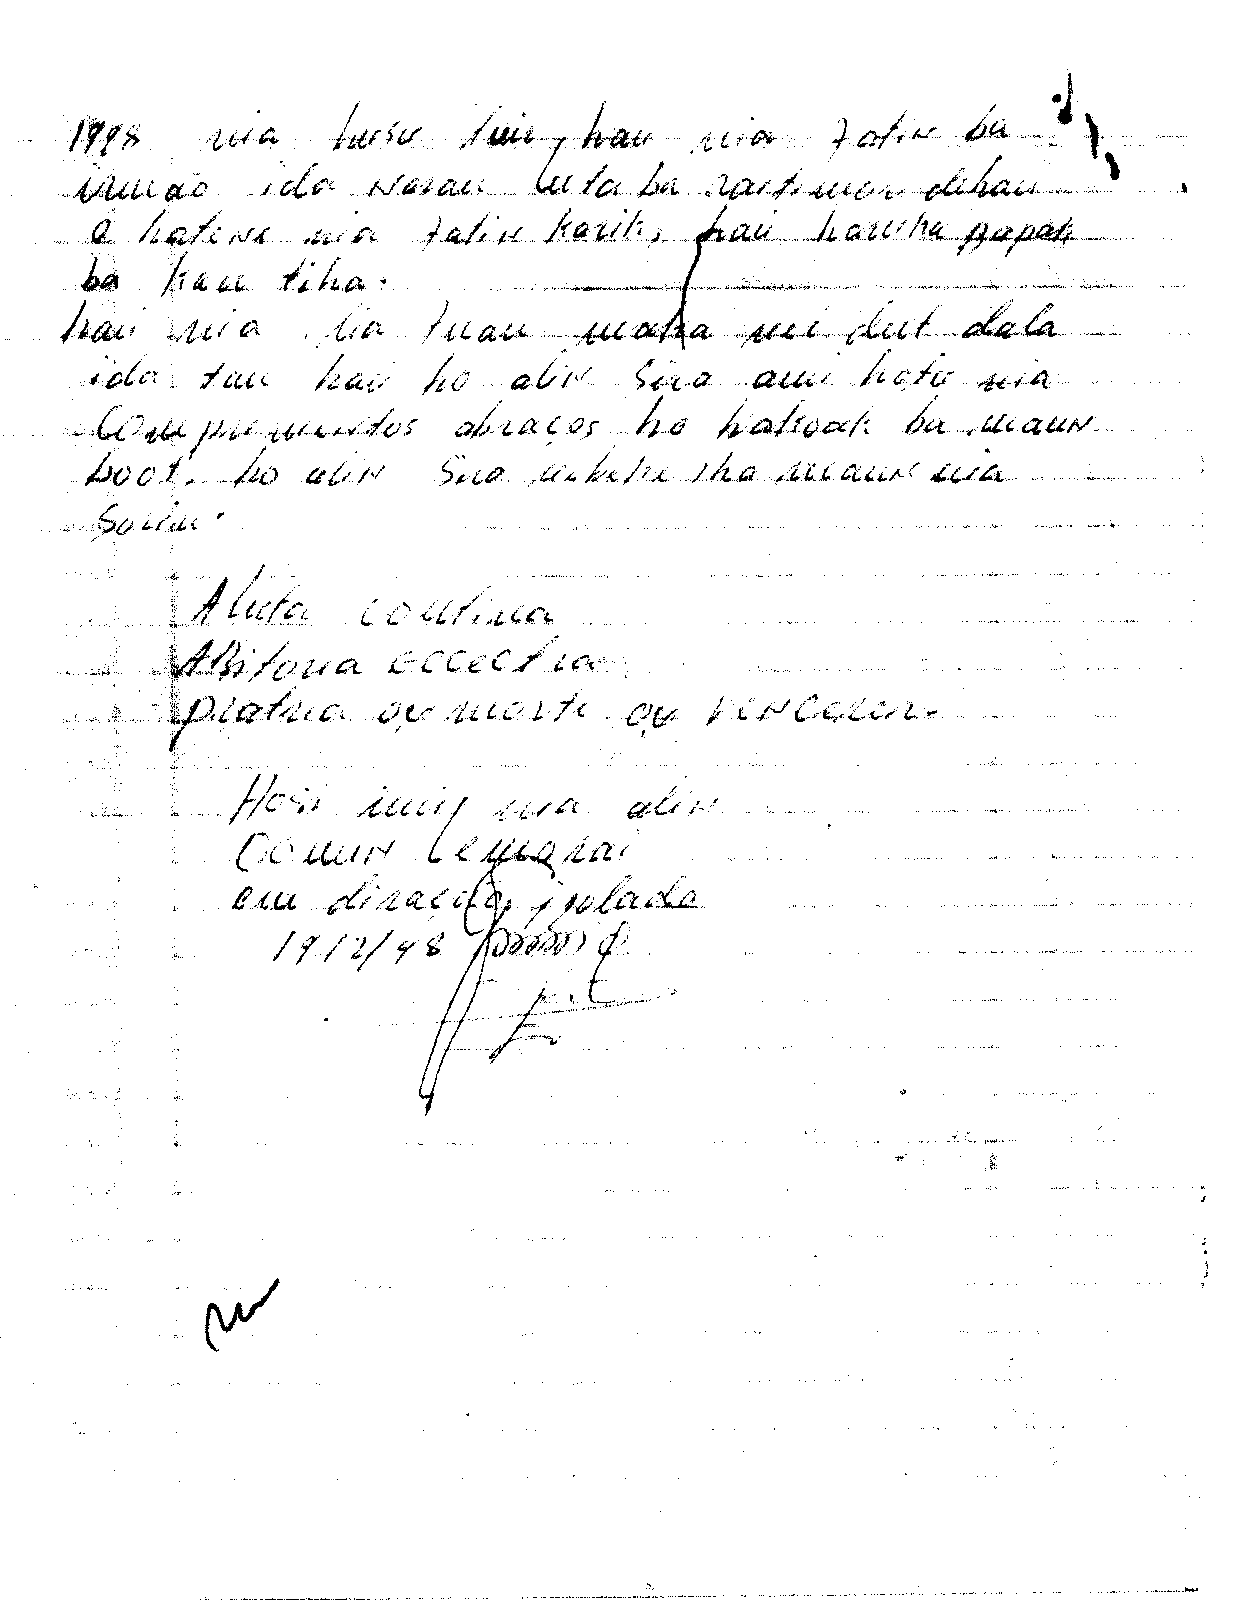 1998 nia husu tuir, hau nia fatin ba
irmão ida naran Luta ba raitimor dehan
o hatene nia fatin karik, hau haruka
ba kau tiha.
hau nia lia fuan maka ne dut dala
ida tau hau ho alin Sira ami hato nia
Comprementos abraços ho hakoak ba maun
boot. ho alin Sira nebehe iha maun nia
Sorin.
Aluta continua
ABitoria
Piatria ou morte ou VENCEREN.
Hosi imiy nia alin
Comun Lemorai
em diração ijolada
1912/98